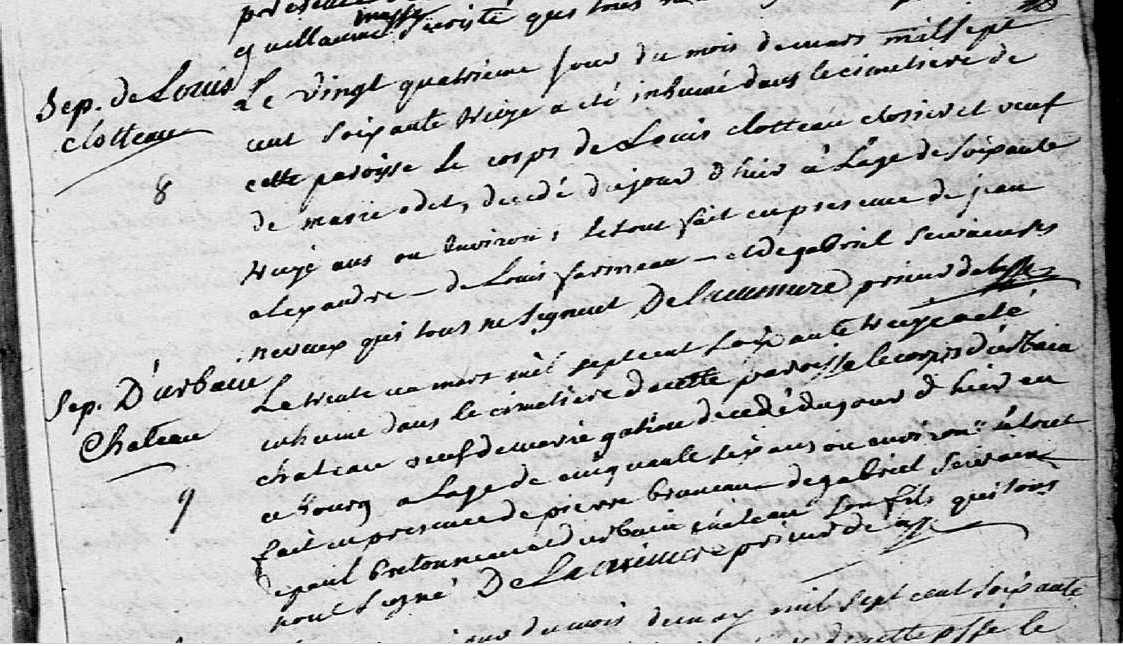 présence
guillaume sevosté qui tous
Sep. de Louis
clotteau
8
Le vingt quatrieme jour du mois de mars mil sept
cent soixante treize a été inhumé dans le cimetiere de
cette paroisse Le corps de Louis clotteau closier et veuf
de marie odet, decedé du jour d'hier a L'age de soixante
treize ans ou Environ, le tout fait en presence de jean
alexandre – de Louis farmeau – et de gabriel servain ses
neveux qui tous ne signent De prieur de
Sep. D'urbain
Chateau
9
Le trente un mars mil sept cent soixante treize a eté
inhumé dans le cimetiere de cette paroisse le corps d'urbain
chateau veuf de marie gation decedé du jour d'hier en
ce Bourg a L'age de cinquante six ans ou environ le tout
fait en presence de pierre bruneau de gabriel servain
de paul bretonneau et d'urbain chateau son fils qui tous
n'ont signé De prieur de
jour du mois de may mil sept cent soixante
de cette psse le